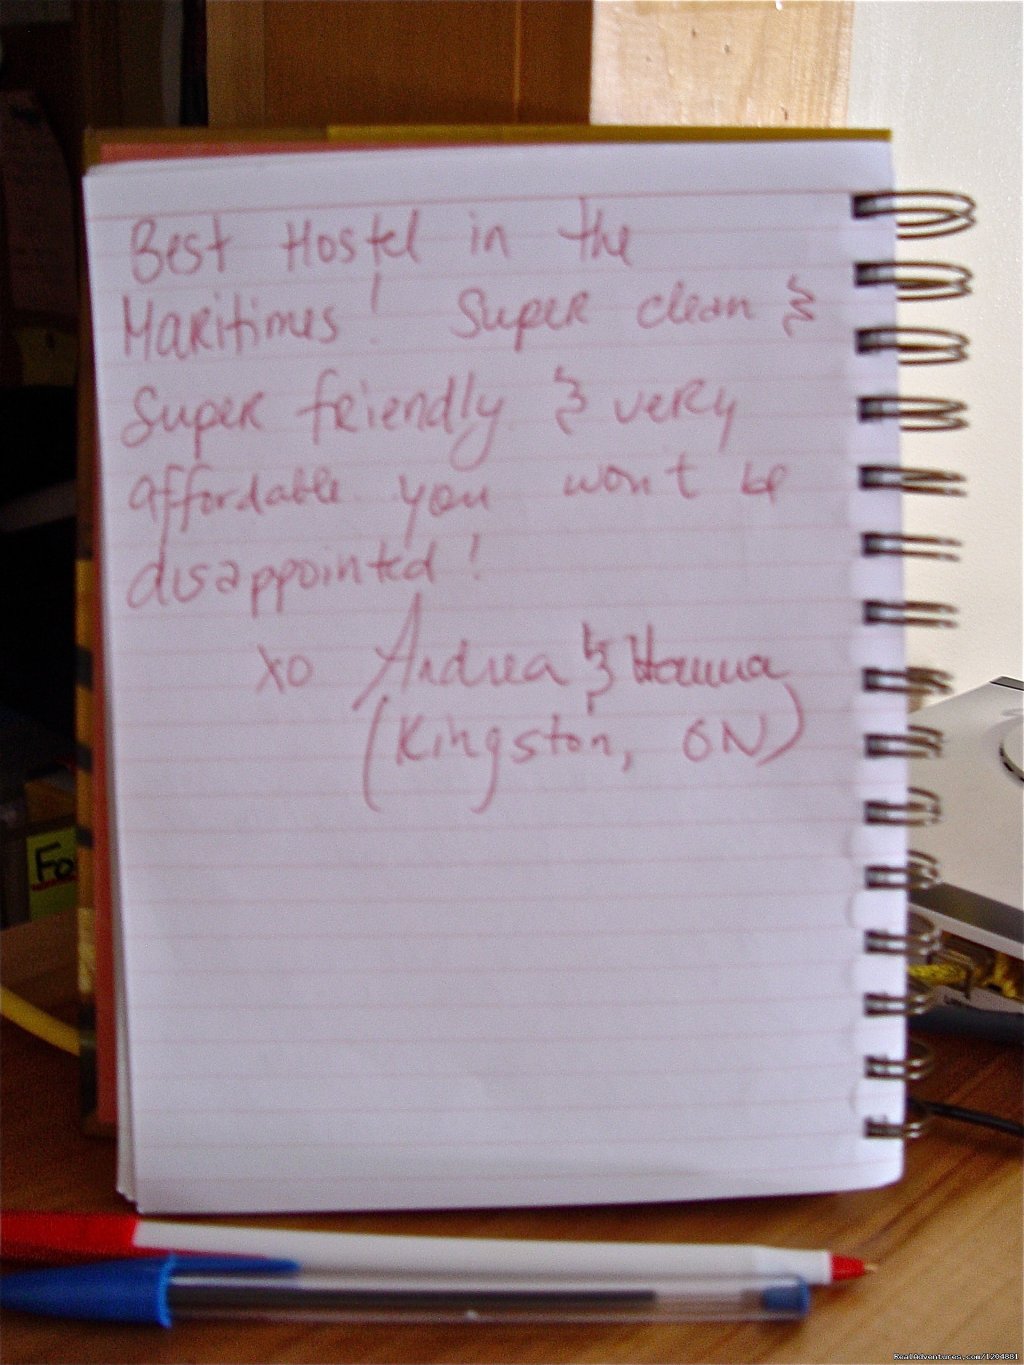 Best Hostel in the
Maritimes! Super clean &
Super friendly & very
affordable you won't be
disappointed!
xo Andrea & Hanna
(Kingston, ON)
Fo
RealAdventures.com/1204881